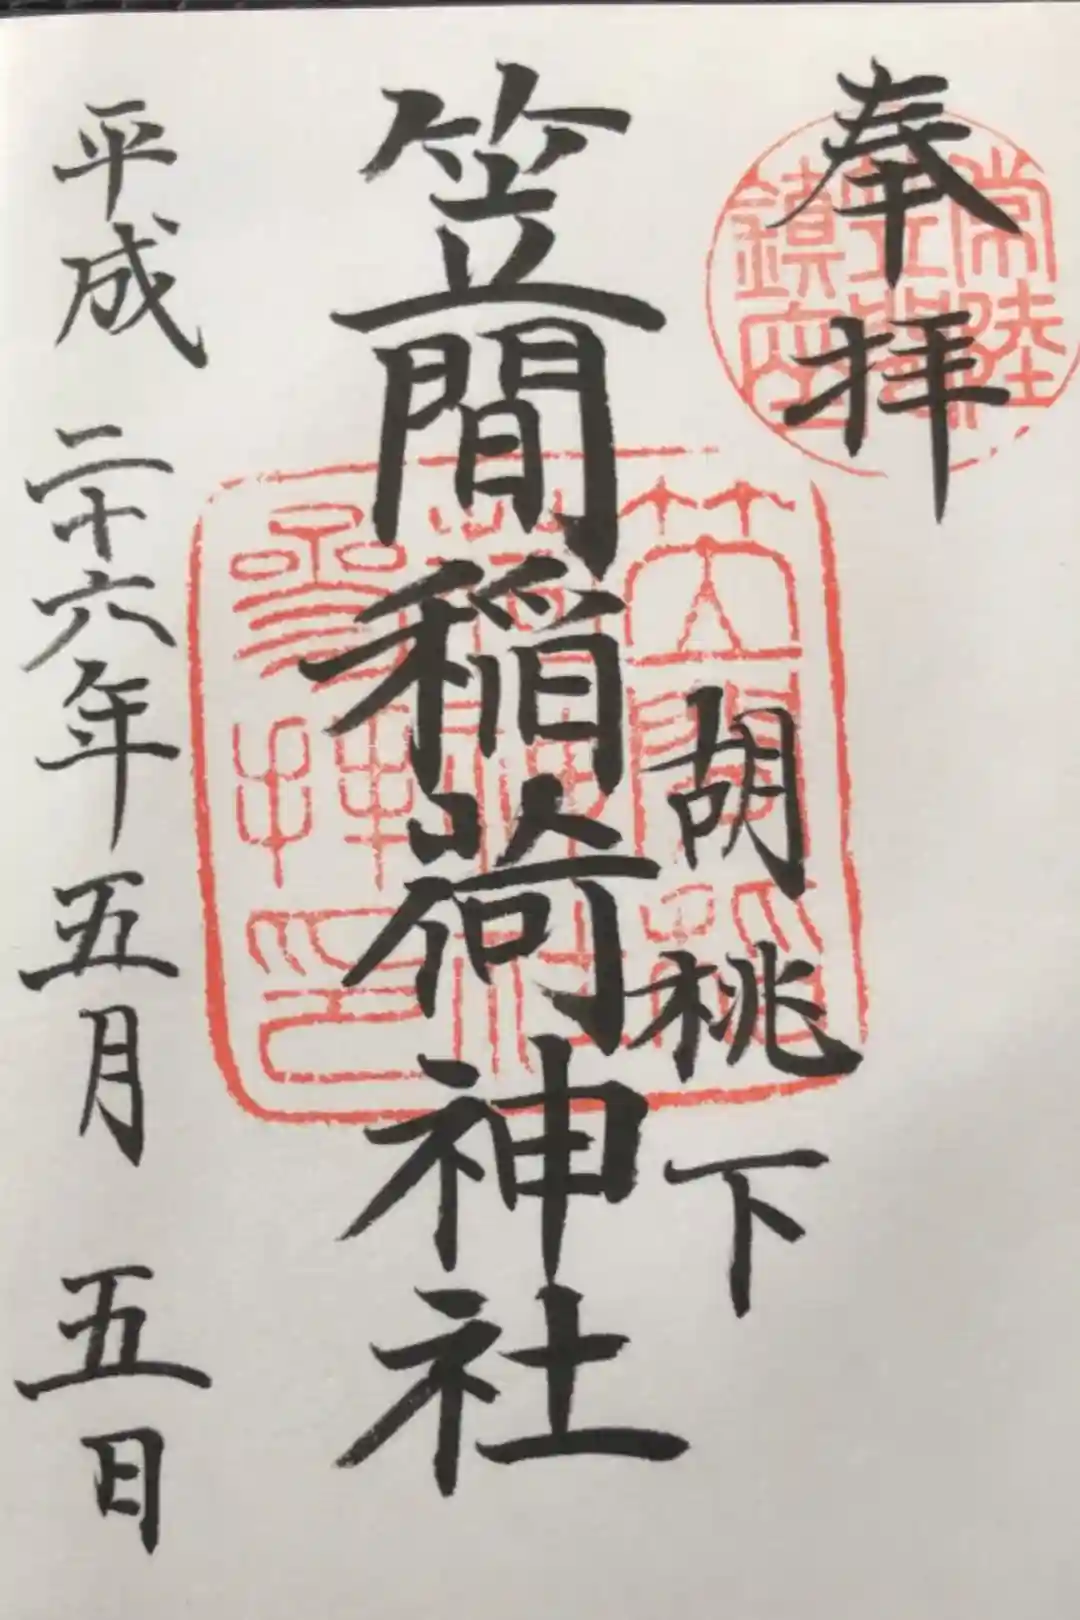 奉拝
常陸
笠間
鎮座
胡桃下
笠間稲荷神社
笠間稲
荷神社
參拝印
平成二十六年五月五日